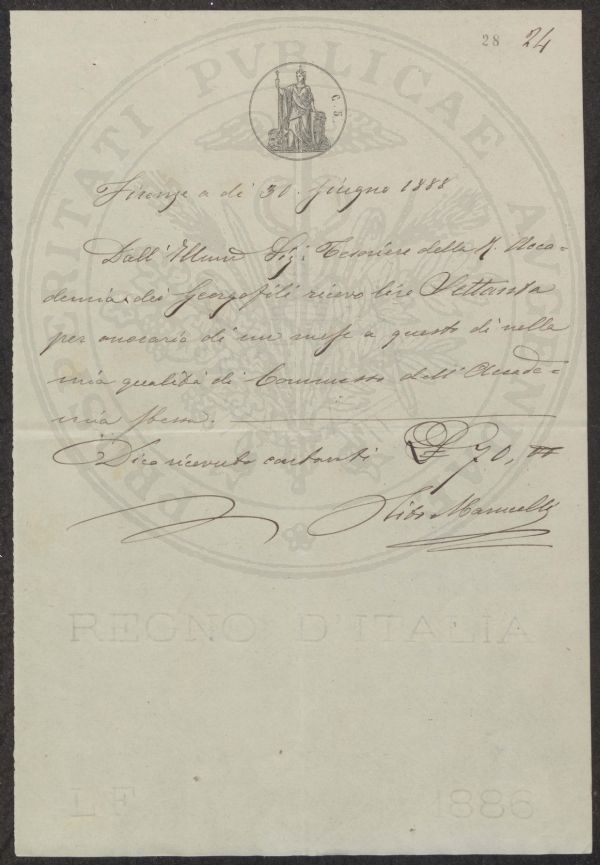 28 24
PROSPERITATI PVBLICAE AVGENDAE
C. 5.
Firenze a dì 30. Giugno 1888
Dall' Illmo Sig: Tesoriere della R. Acca-
demia dei Georgofili ricevo lire Settanta
per onorario di un mese a questo dì nella
mia qualità di Commesso dell' Accade-
mia stessa.
Dico ricevuto contanti £ 70, "
Marucelli
REGNO D'ITALIA
LF 1886